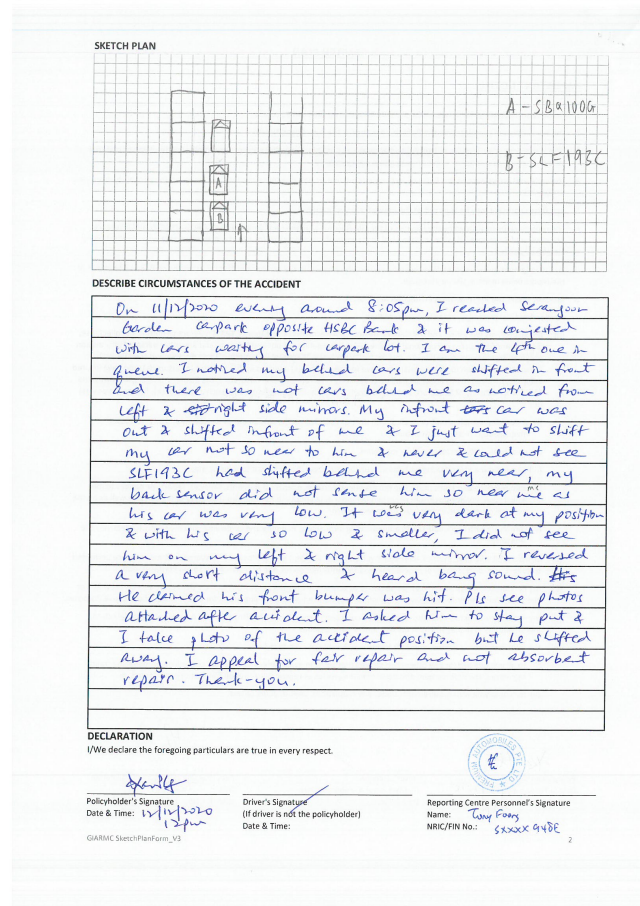 SKETCH PLAN
A - SBQ100G
B - SLF193C
A
B
DESCRIBE CIRCUMSTANCES OF THE ACCIDENT
On 11/12/2020 evening around 8:05pm, I reached Serangoon
Garden carpark opposite HSBC Bank & it was congested
with cars waiting for carpark lot. I am the 4th one in
queue. I noticed my behind cars were shifted in front
and there was not cars behind me as noticed from
left & right side mirrors. My infront car was
out & shifted infront of me & I just want to shift
my car not so near to him & never & could not see
SLF193C had shifted behind me very near, my
back sensor did not sense him so near me as
his car was very low. It was very dark at my position
& with his car so low & smaller, I did not see
him on my left & right side mirror. I reversed
a very short distance & heard bang sound.
He claimed his front bumper was hit. Pls see photos
attached after accident. I asked him to stay put &
I take photo of the accident position but he shifted
away. I appeal for fair repair and not absorbent
repair. Thank-you.
DECLARATION
I/We declare the foregoing particulars are true in every respect.
AUTOMOBILES PTE LTD
Policyholder's Signature
Date & Time: 12/12/2020
12pm
Driver's Signature
(If driver is not the policyholder)
Date & Time:
Reporting Centre Personnel's Signature
Name: Tony
NRIC/FIN No.: SXXXX948E
GIARMC SketchPlanForm_V3
2